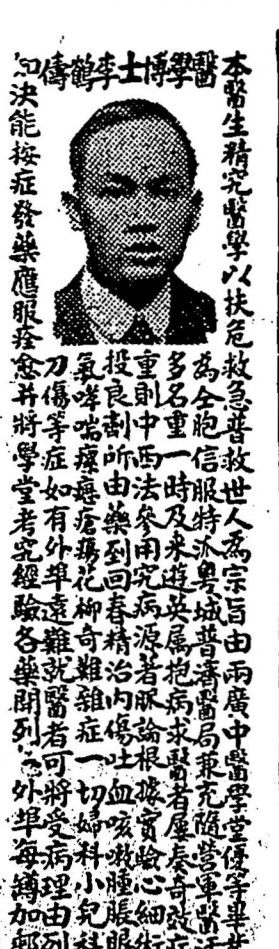 醫學博士李鶴儔
本醫生精究醫學以扶危救急普救世人為宗旨由兩廣中醫學堂優等畢業
為仝胞信服特派粵城普濟醫局兼充隨營軍醫
多名重一時及来遊英属抱病求醫者屢奏奇效
重則中西法參用究病源著脈論根據實驗心細術
投良割所由藥到回春精治内傷吐血咳嗽腫脹眼
氣哮喘瘰癧瘡瘍花柳奇難雜症一切婦科小兒科
刀傷等症如有外埠遠難就醫者可將受病理由列
決能按症發藥應服痊愈并將學堂考究經驗各藥開列 外埠每罇加郵